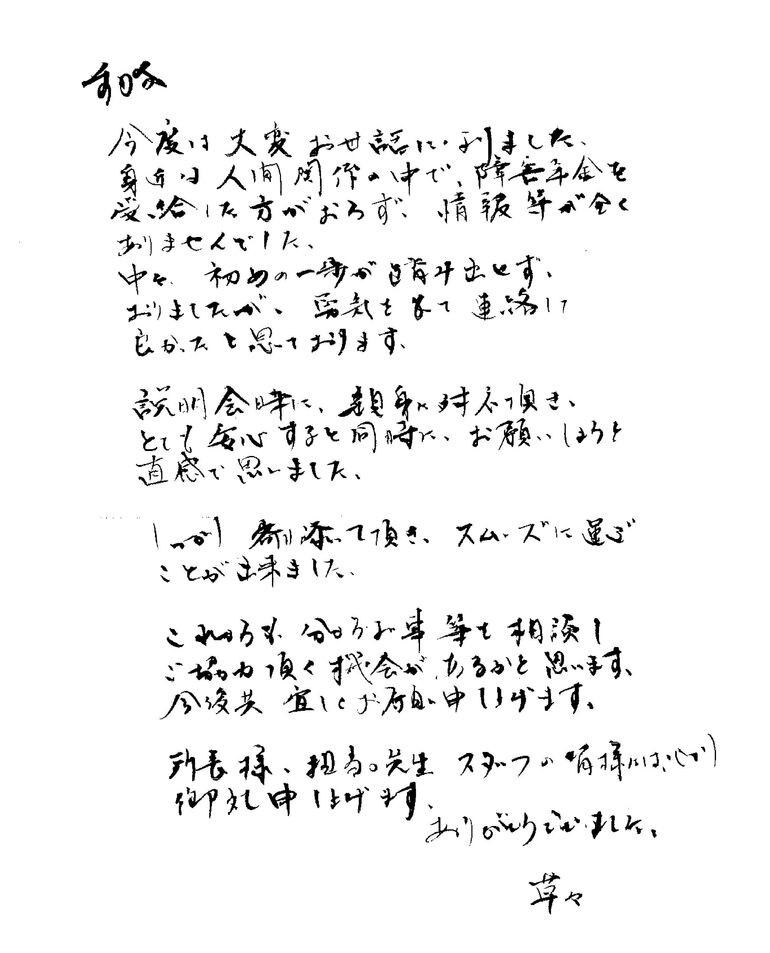 前略
今度は大変お世話になりました。
身近な人間関係の中で、障害年金を
受給した方がおらず、情報等が全く
ありませんでした。
中々、初めの一歩が踏み出せず、
おりましたが、勇気を出して連絡して
良かったと思っております。
説明会時に、親身に対応頂き、
とても安心すると同時に、お願いしようと
直感で思いました。
しっかり寄り添って頂き、スムーズに運ぶ
ことが出来ました。
これからも、分からない事等を相談し
ご協力頂く機会があるかと思います。
今後共宜しくお願い申し上げます。
所長様、担当の先生 スタッフの皆様には、心から
御礼申し上げます。
ありがとうございました。
草々